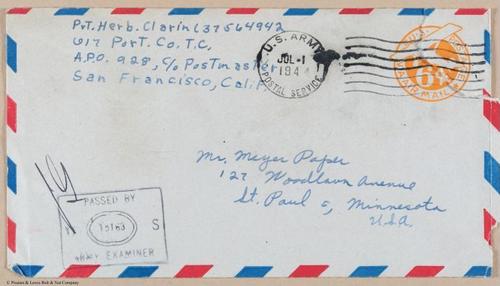 Pvt. Herb. Clarin 37564942
617 Port. Co. T.C,
A.P.O. 928, C/o Postmaster
San Francisco, Calif
U.S. ARMY
JUL-1
194
POSTAL SERVICE
6¢
AIR MAIL
Mr. Meyer Paper
127 Woodlawn Avenue
St. Paul 5, Minnesota
U.S.A.
PASSED BY
S
ARMY EXAMINER
© Picture & Lewis